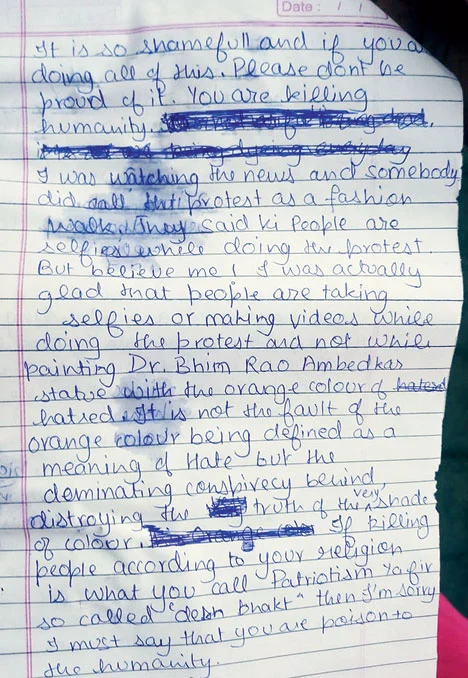 Date : / /
It is so shamefull and if you a
doing all of this. Please dont be
proud of it. You are killing
humanity.
I was watching the news and somebody
did call this protest as a fashion
walk. They said ki People are
selfies while doing the protest.
But believe me! I was actually
glad that people are taking
selfies or making videos while
doing the protest and not while
painting Dr. Bhim Rao Ambedkar
statue with the orange colour of hatred
hatred. It is not the fault of the
orange colour being defined as a
meaning of Hate but the
deminating conspirecy behind,
distroying the truth of the very shade
of colour. If killing
people according to your religion
is what you call Patriotism ya fir
so called "desh bhakt" then I'm sorry
I must say that you are poison to
the humanity.